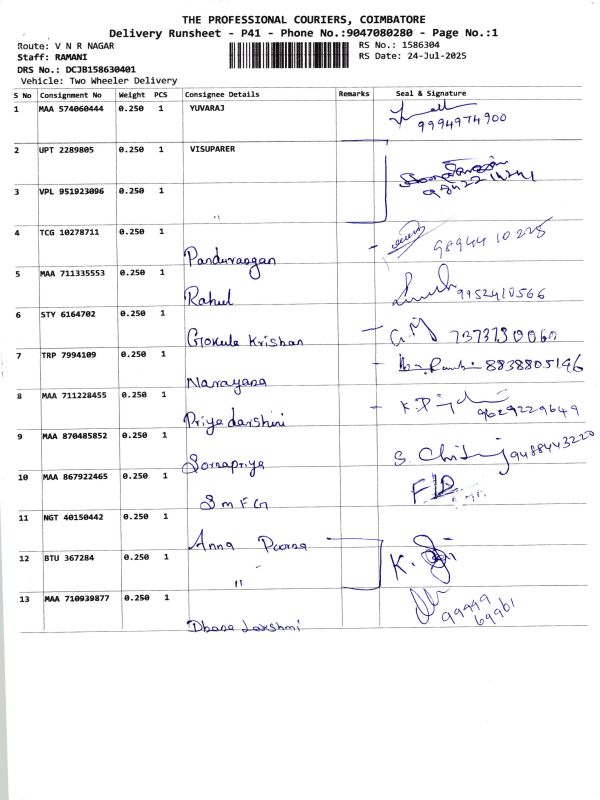 THE PROFESSIONAL COURIERS, COIMBATORE
Delivery Runsheet - P41 - Phone No.:9047080280 - Page No.:1
Route: V N R NAGAR
RS No.: 1586304
Staff: RAMANI
RS Date: 24-Jul-2025
DRS No.: DCJB158630401
Vehicle: Two Wheeler Delivery
S No Consignment No Weight PCS Consignee Details Remarks Seal & Signature
1 MAA 574060444 0.250 1 YUVARAJ
9994974900
2 UPT 2289805 0.250 1 VISUPARER
3 VPL 951923096 0.250 1 "
4 TCG 10278711 0.250 1 Panduraogan
5 MAA 711335553 0.250 1 Rahul
9952410566
6 STY 6164702 0.250 1 Gokula Krishan
7 TRP 7994109 0.250 1 Narayana
8838805146
8 MAA 711228455 0.250 1 Priyadarshini
9629229649
9 MAA 870485852 0.250 1 Sornapriya
9488443220
10 MAA 867922465 0.250 1 SMFG
11 NGT 40150442 0.250 1 Anna Poorna
12 BTU 367284 0.250 1 "
K.
13 MAA 710939877 0.250 1 Dhana Lakshmi
99949
69961